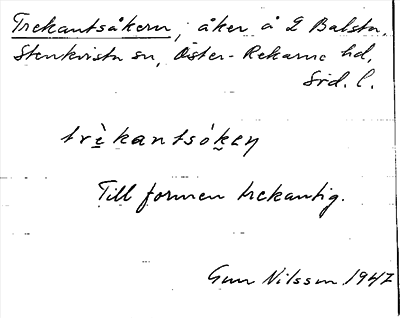 Trekantsåkern, åker å L Balsta,
Stenkvista sn, Öster-Rekarne hd,
Srd. l.
trè̱kantsó̱ken
Till formen trekantig.
Gun Nilsson 1947